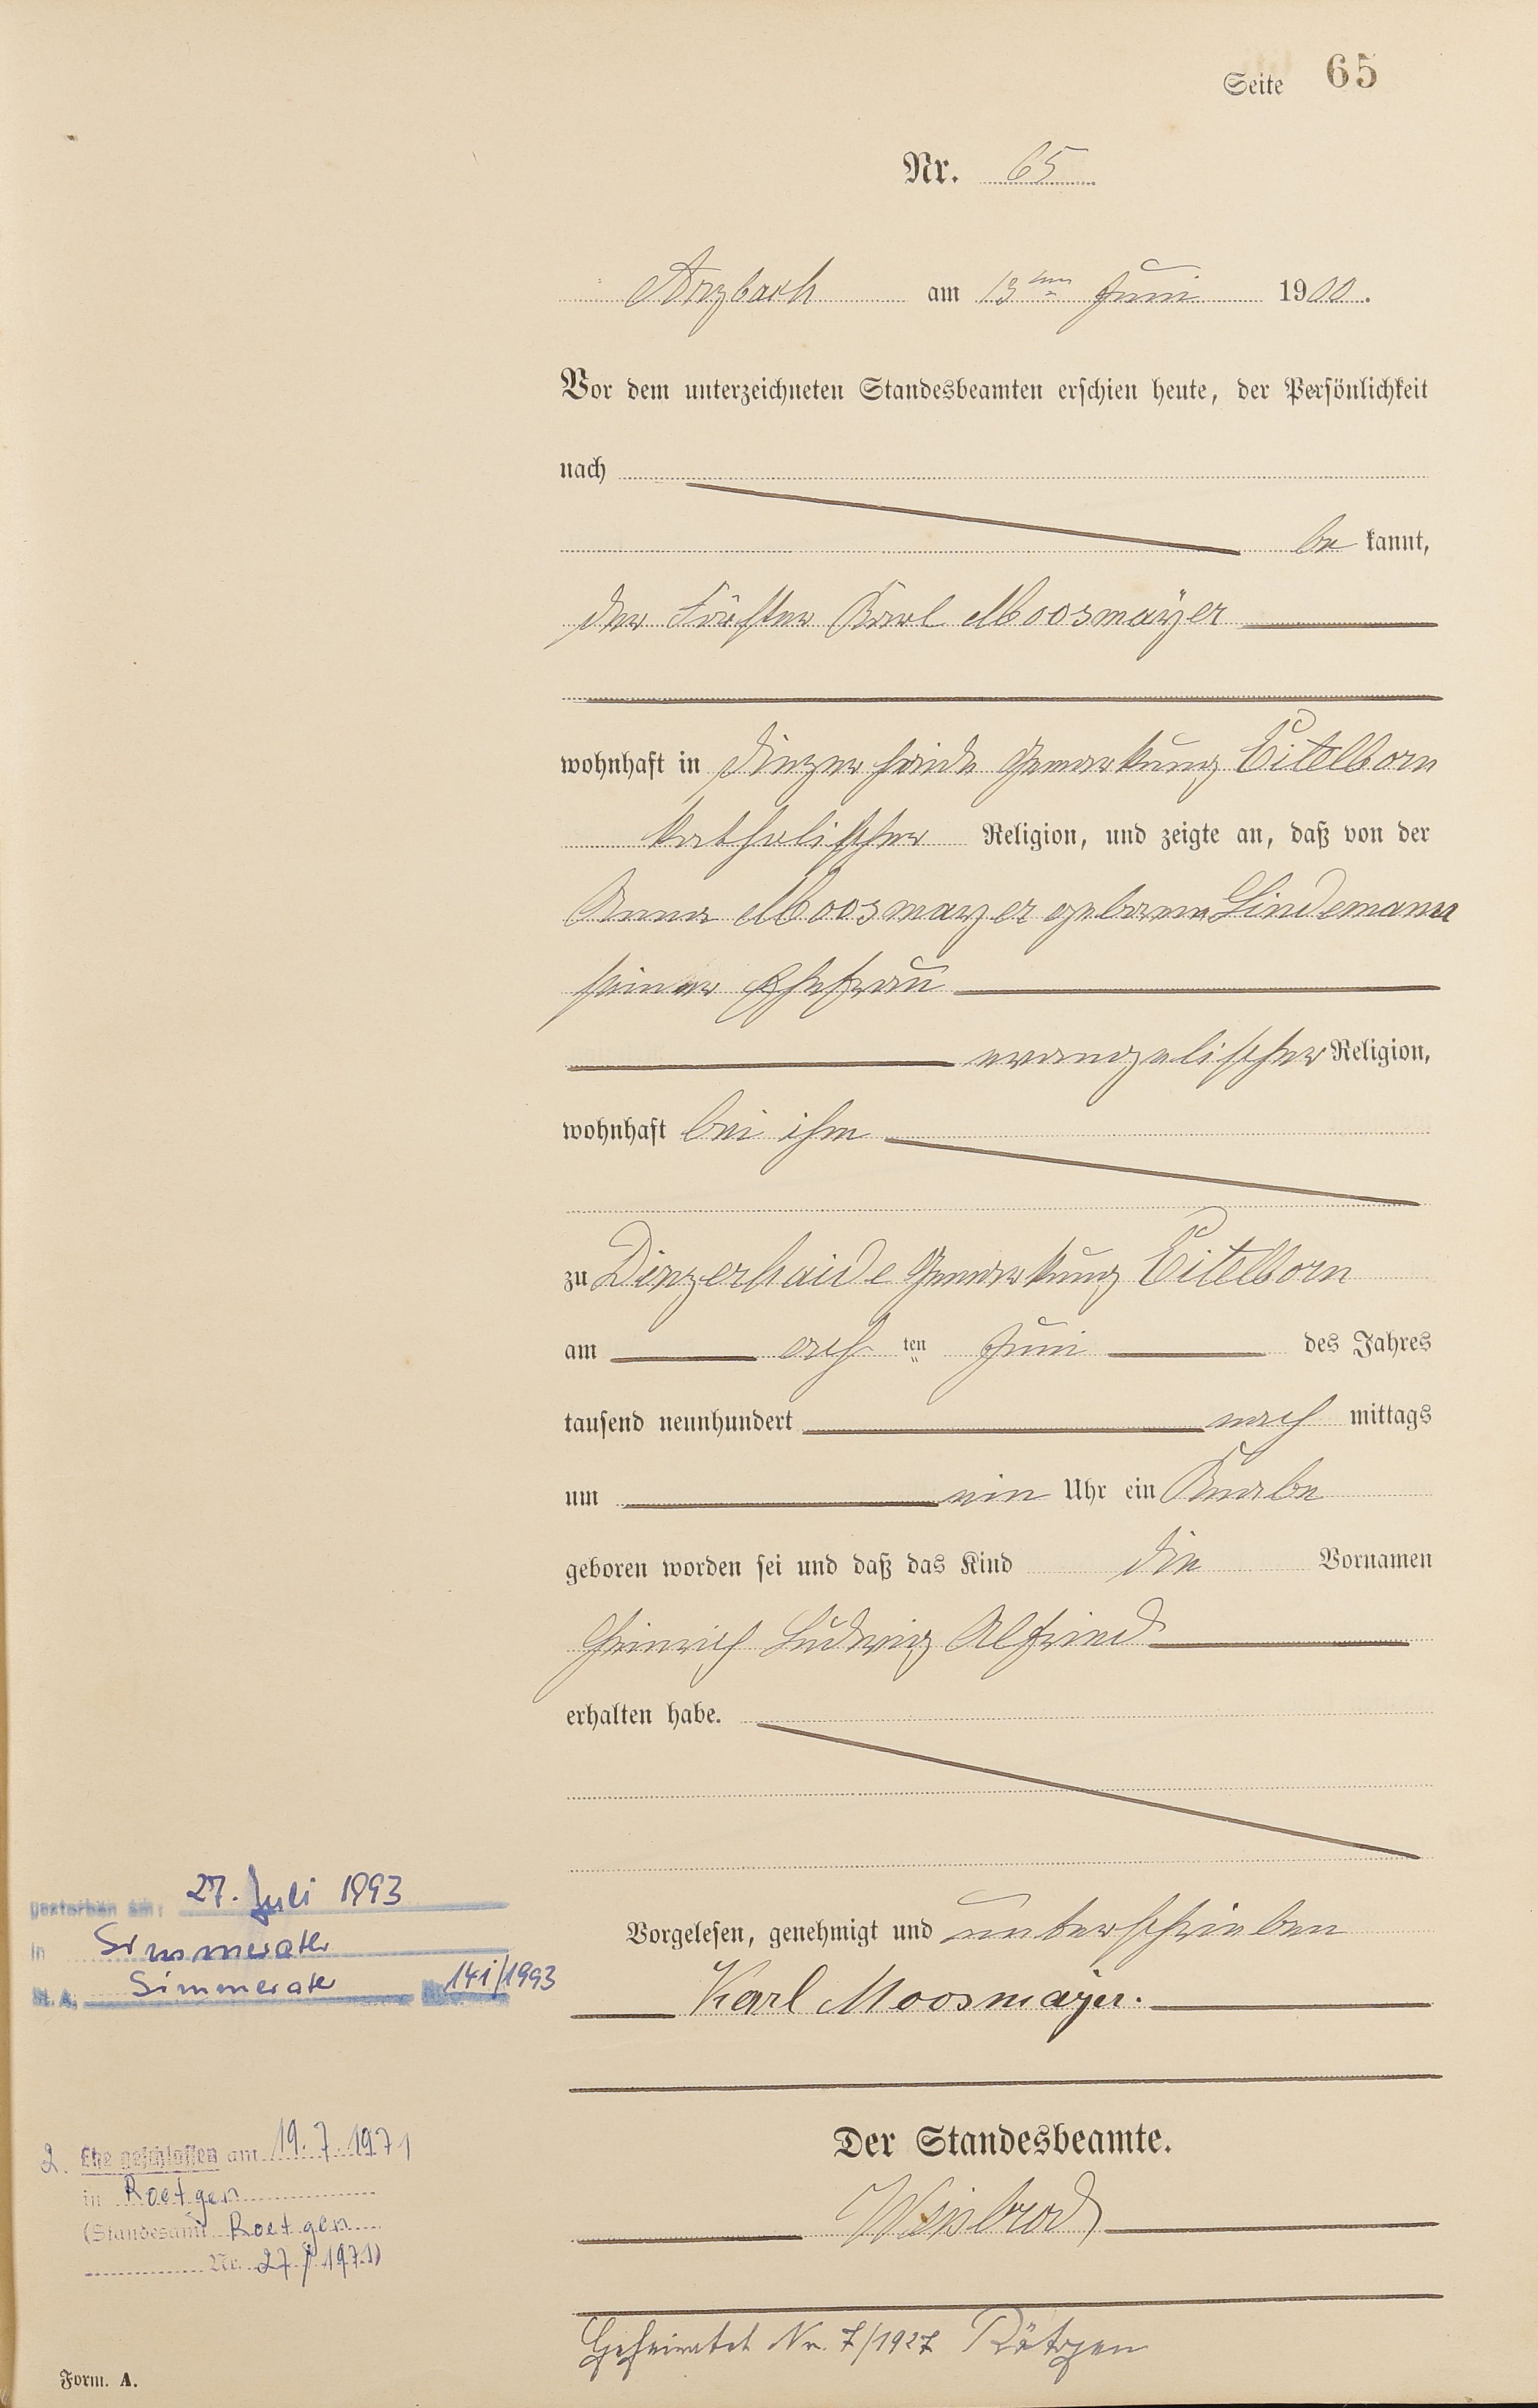 Seite 65
Nr. 65
Arzbach am 13ten Juni 1900.
Vor dem unterzeichneten Standesbeamten erschien heute, der Persönlichkeit
nach
be kannt,
der Förster Karl Moosmayer
wohnhaft in Dinzerhaide Gemarkung Eitelborn
katholischer Religion, und zeigte an, daß von der
Anna Moosmayer geborene Lindemann
seiner Ehefrau
evangelischer Religion,
wohnhaft bei ihm
zu Dinzerhaide Gemarkung Eitelborn
am ach ten Juni des Jahres
tausend neunhundert nach mittags
um ein Uhr ein Knabe
geboren worden sei und daß das Kind die Vornamen
Heinrich Ludwig Alfried
erhalten habe.
Vorgelesen, genehmigt und unterschrieben
Karl Moosmayer.
Der Standesbeamte.
Weisbrod
Geheiratet Nr. 7/1927 Rötgen
gestorben am: 27. Juli 1993
in Simmerath
St. A. Simmerath Nr. 141/1993
2. Ehe geschlossen am 19.7.1971
in Roetgen
(Standesamt Roetgen
Nr. 27/1971)
Form. A.